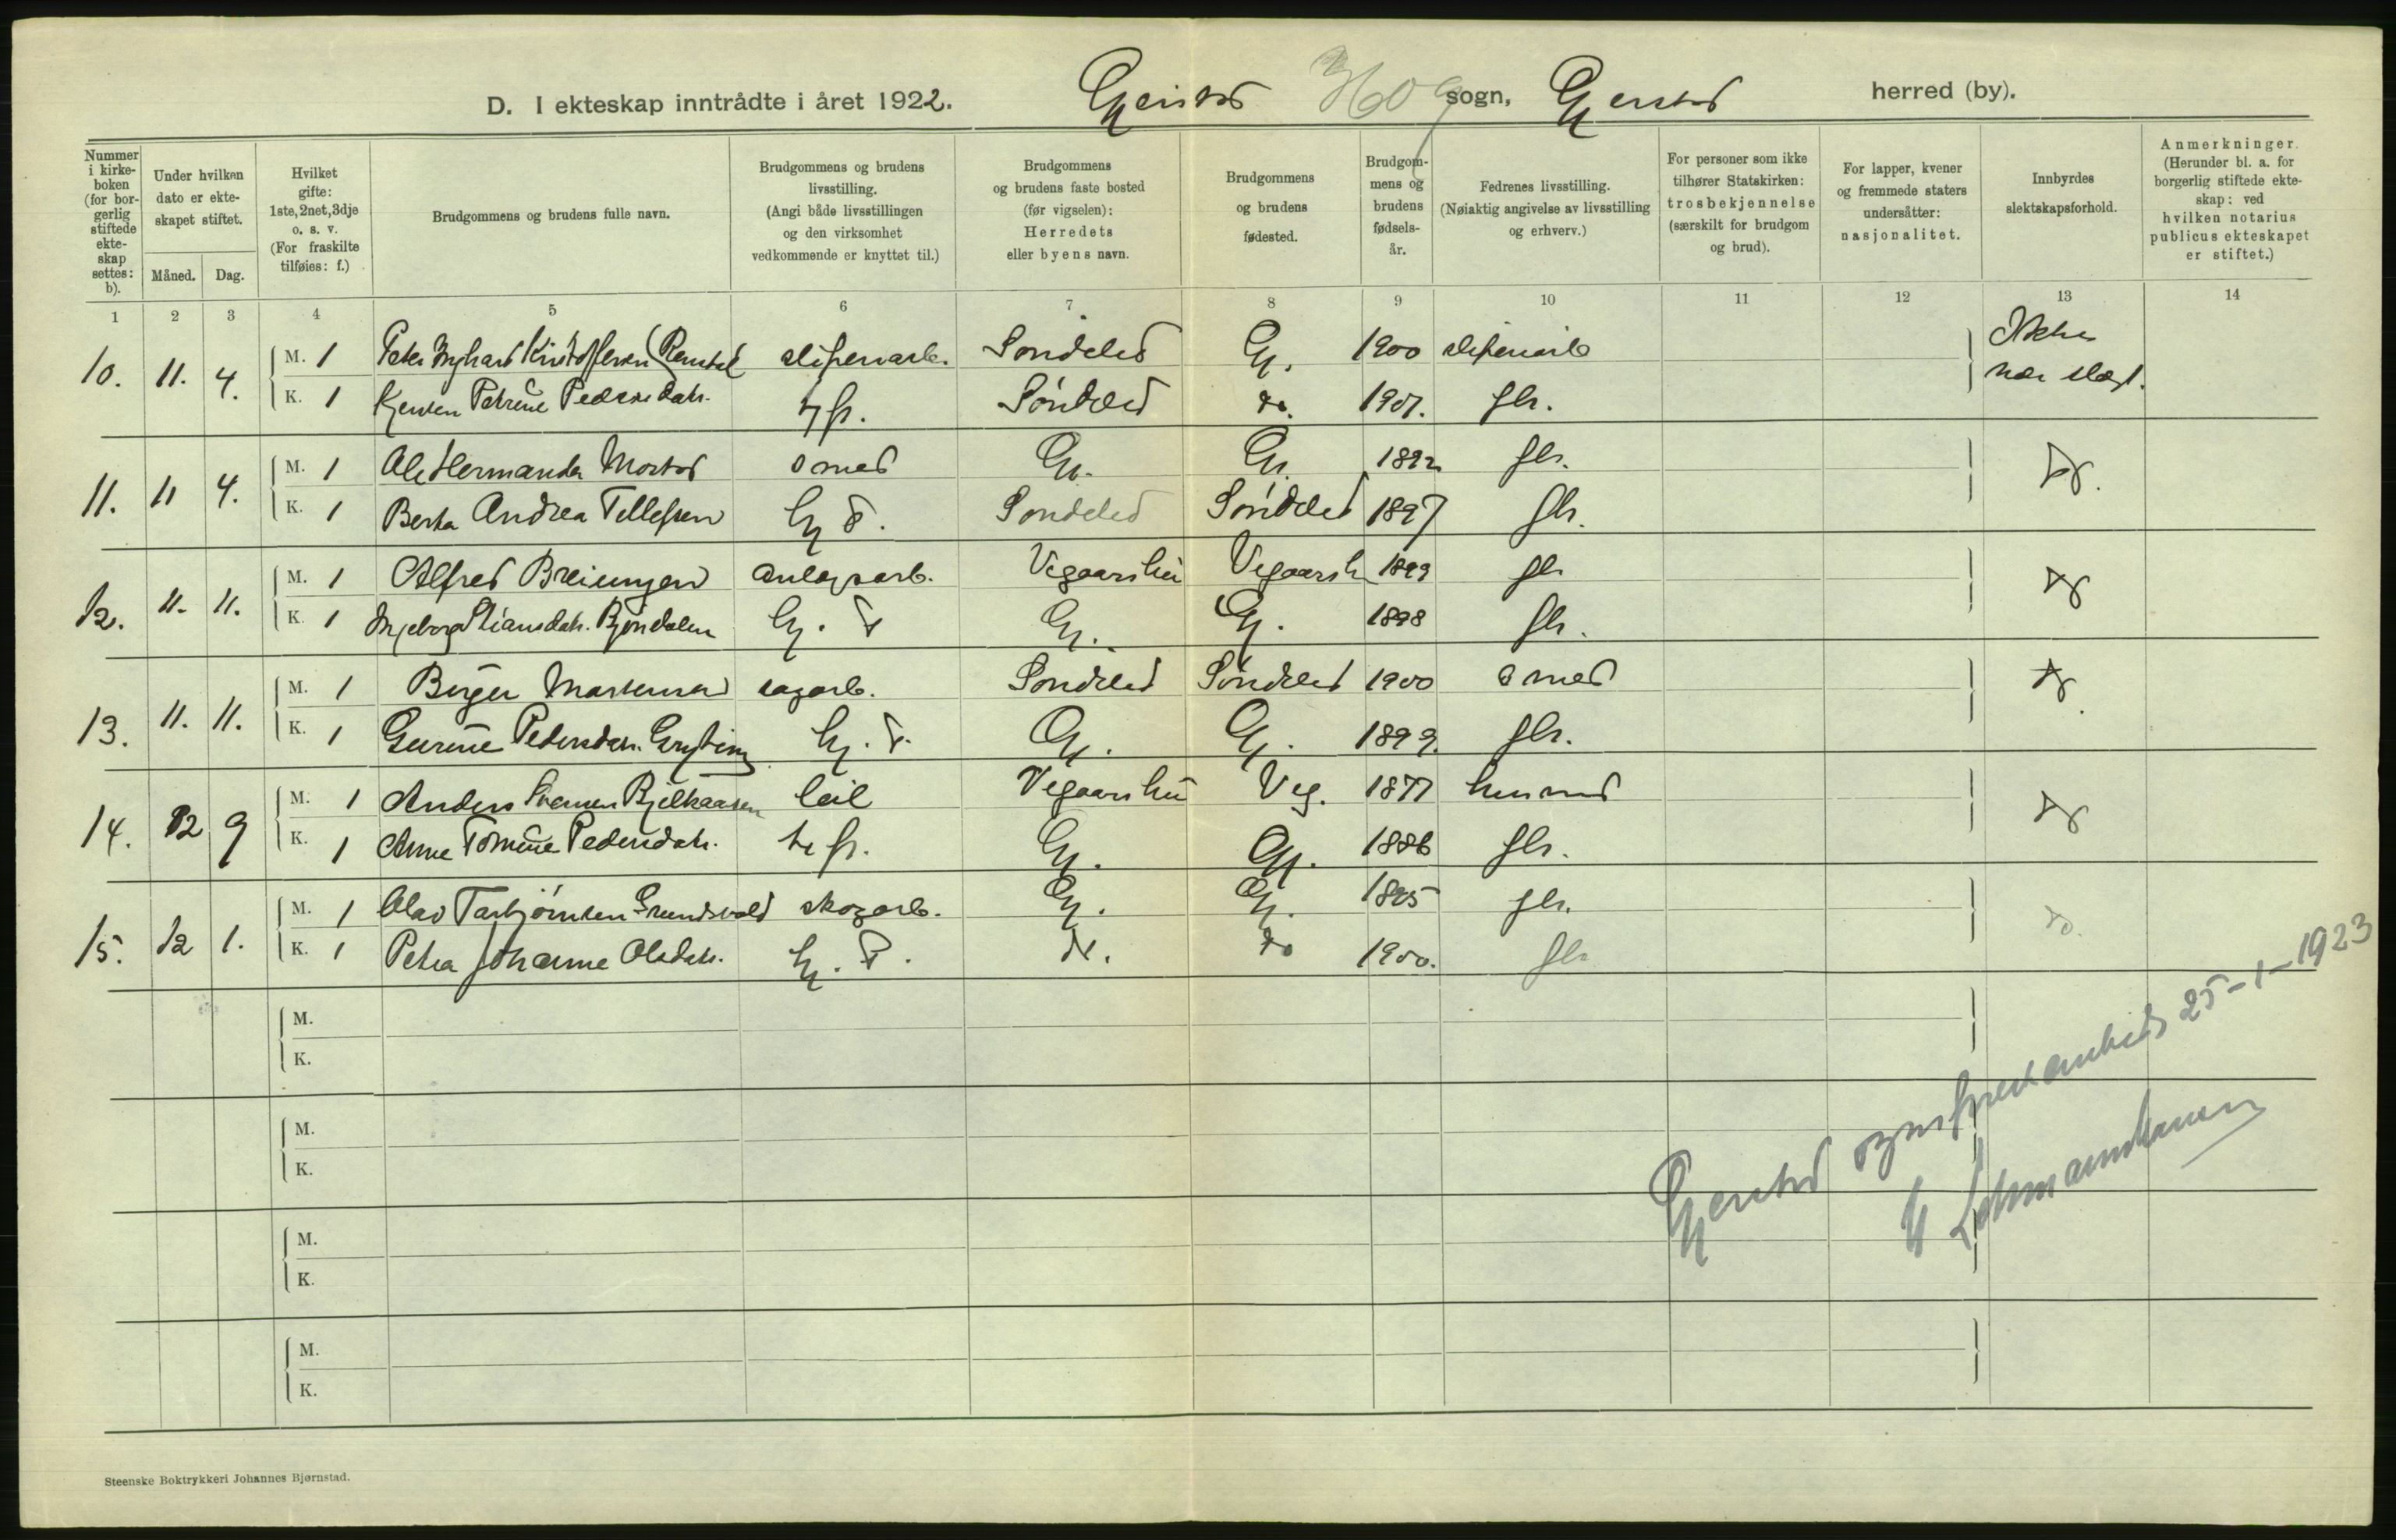 D. I ekteskap inntrådte i året 1922. Gjerstad 3609 sogn, Gjerstad herred (by).
Nummer i kirkeboken (for borgerlig stiftede ekteskap settes: b).
Under hvilken dato er ekteskapet stiftet.
Måned. Dag.
Hvilket gifte: 1ste, 2net, 3dje o. s. v. (For fraskilte tilføies: f.)
Brudgommens og brudens fulle navn.
Brudgommens og brudens livsstilling. (Angi både livsstillingen og den virksomhet vedkommende er knyttet til.)
Brudgommens og brudens faste bosted (før vigselen): Herredets eller byens navn.
Brudgommens og brudens fødested.
Brudgommens og brudens fødselsår.
Fedrenes livsstilling. (Nøiaktig angivelse av livsstilling og erhverv.)
For personer som ikke tilhører Statskirken: trosbekjennelse (særskilt for brudgom og brud).
For lapper, kvener og fremmede staters undersåtter: nasjonalitet.
Innbyrdes slektskapsforhold.
Anmerkninger. (Herunder bl. a. for borgerlig stiftede ekteskap: ved hvilken notarius publicus ekteskapet er stiftet.)
1 2 3 4 5 6 7 8 9 10 11 12 13 14
10. 11. 4. M. 1 Kristoffersen sliperiarb. Søndeled Gj. 1900 sliperiarb Ikke
K. 1 Petrine Pedersdatr. Søndeled do. gbr. nær slægt.
11. 11 4. M. 1 Ole Hermansen smed Gj. Gj. 1892 gbr. do.
K. 1 Berta Andrea Tellefsen Hj. D. Søndeled Søndeled 1897 gbr.
12. 11. 11. M. 1 Alfred anlægsarb. Vegaarshei Vegaarsh 1899 gbr do
K. 1 Ingeborg Stiansdatr. Bjørndalen Hj. D Gj. Gj. 1898 gbr.
13. 11. 11. M. 1 Birger Martensen sagarb. Søndeled Søndeled 1900 smed do.
K. 1 Gurine Pedersdatr. Hj. D. Gj. Gj. 1899. gbr.
14. 12 9 M. 1 Anders Vegaarshei Veg. 1877 husmand do
K. 1 Anne Tomine Pedersdatr. Gj. Gj. 1886 gbr.
15. 12 1. M. 1 Olav Tarbjørnsen skogarb. Gj. Gj. 1895 gbr. do.
K. 1 Petra Johanne Olsdatr. Hj. D. do. do 1900. gbr
M.
K.
M.
K.
M.
K.
M.
K.
Gjerstad sogneprestembede 25-1-1923
Steenske Boktrykkeri Johannes Bjørnstad.